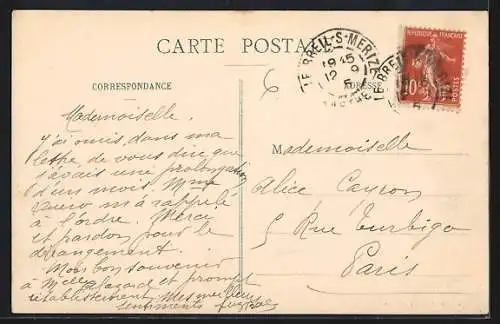 CARTE POSTALE
CORRESPONDANCE
ADRESSE
LE BREIL-S-MERIZE
19 45
12 9
5
RÉPUBLIQUE FRANÇAISE
10
POSTES
6
Mademoiselle.
J'ai omis, dans ma
lettre, de vous dire que
j'avais une prolongation
d'un mois. Mme
m'a rappelé
à l'ordre. Merci
et pardon pour le
dérangement.
Mon bon souvenir
à Melle et prompt
rétablissement. Mes meilleurs
sentiments
Mademoiselle
Alice Cayron
5 Rue Turbigo
Paris